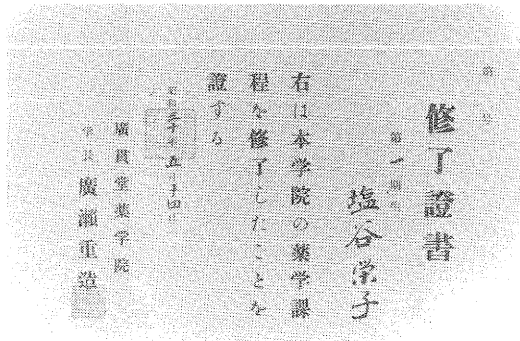 第 号
修了證書
第一期生
塩谷栄子
右は本学院の薬学課
程を修了したことを
證する
昭和三十年五月四日
廣貫堂薬学院
学長 廣瀬重造